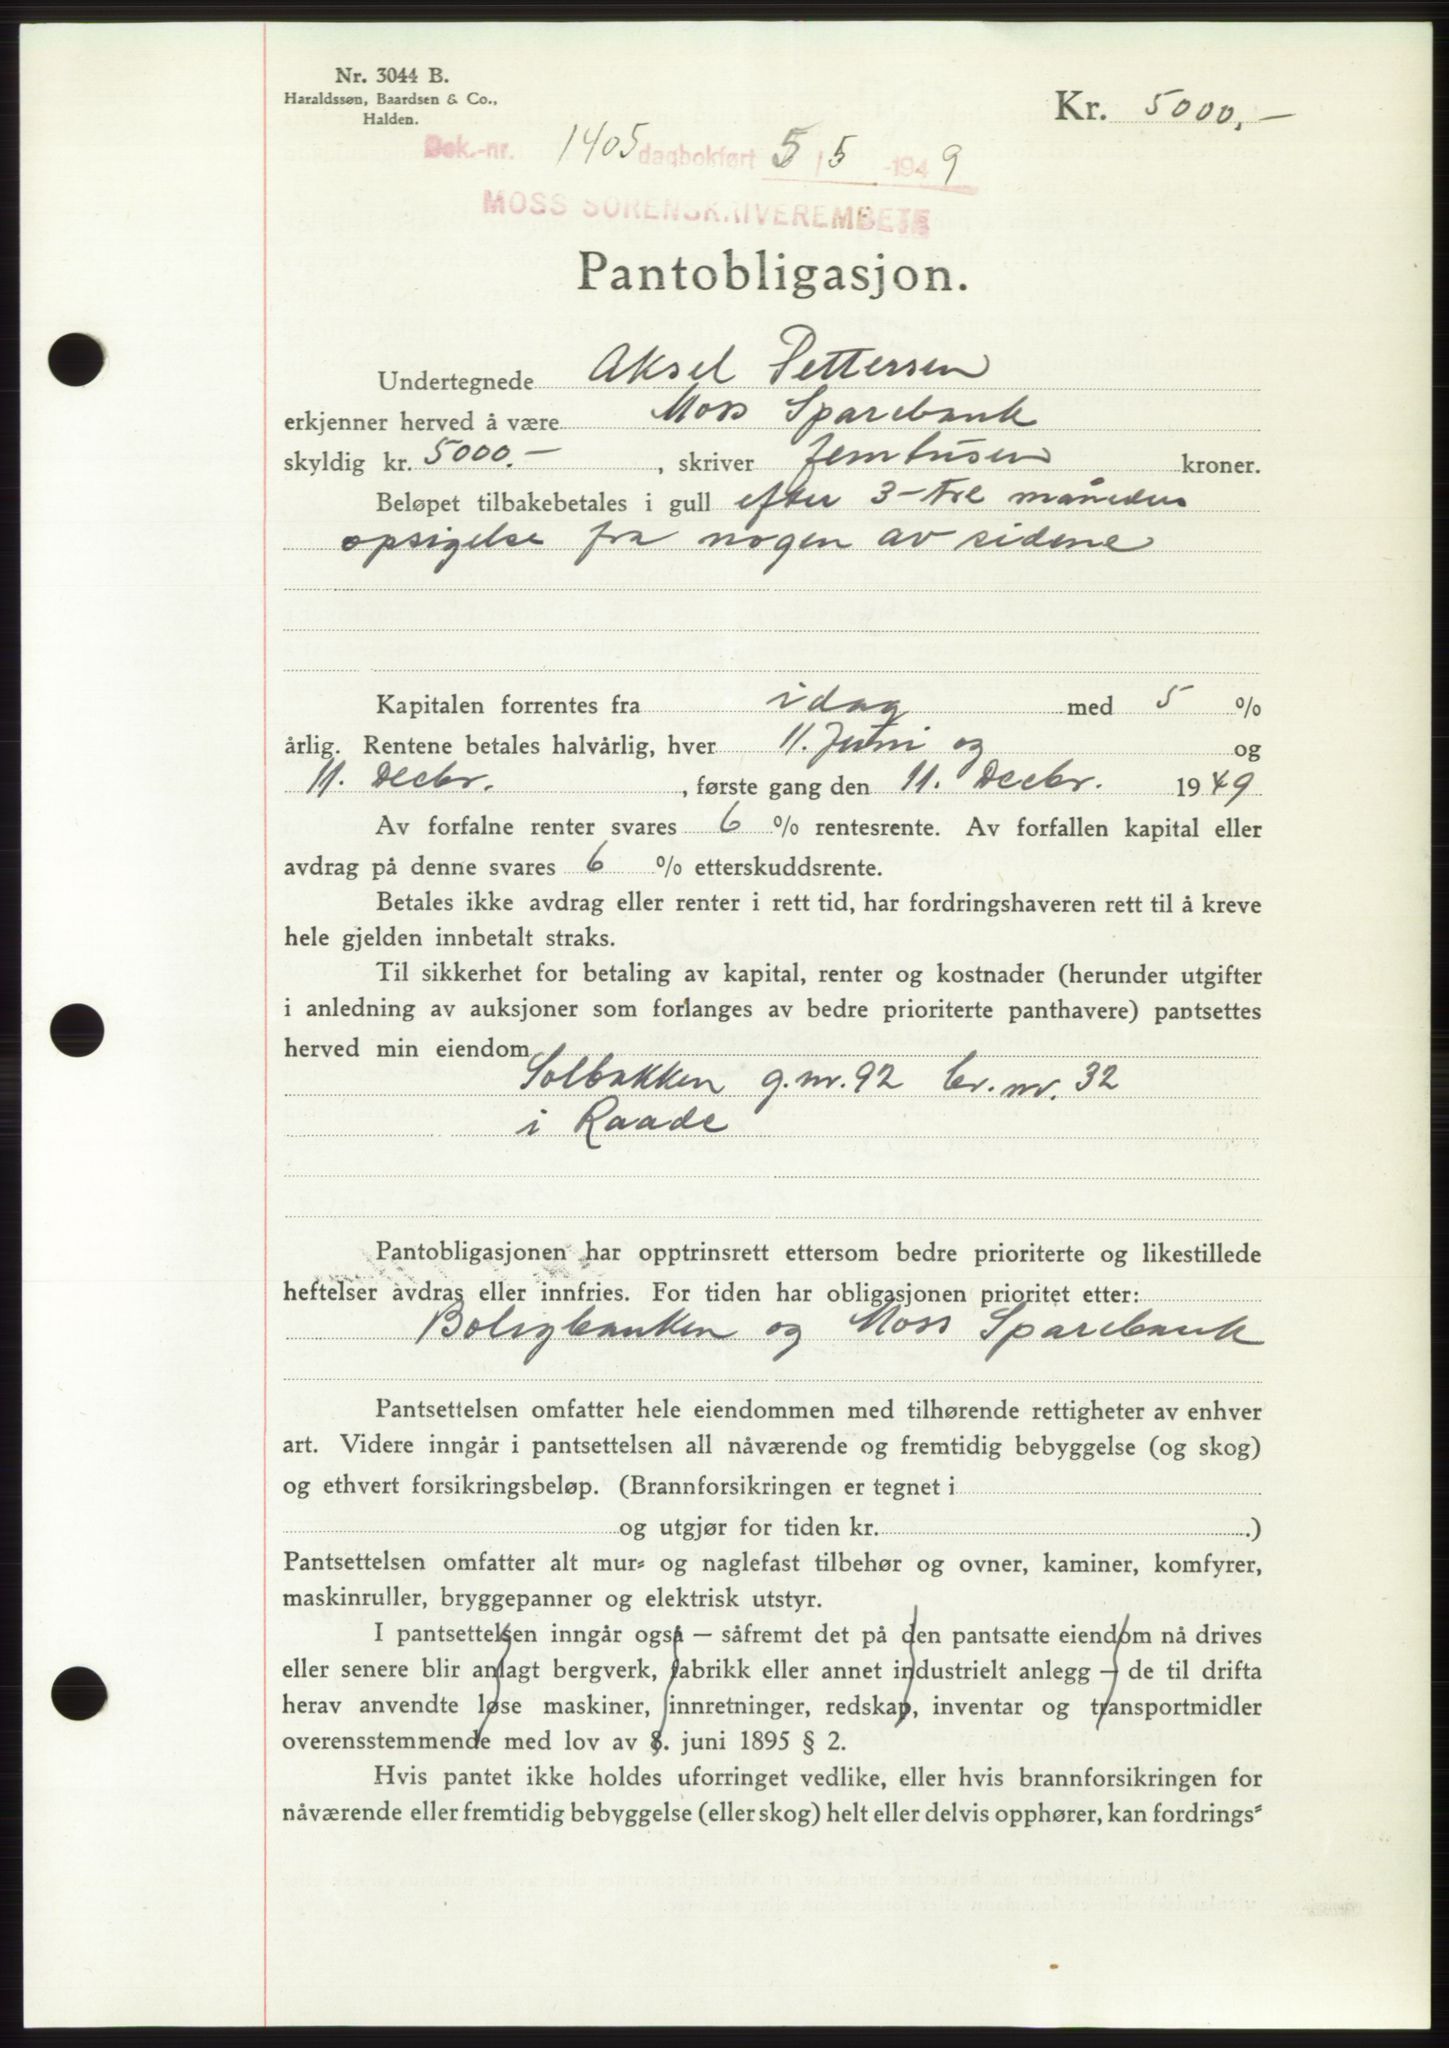 Nr. 3044 B.
Haraldssøn, Baardsen & Co.,
Halden.
Kr. 5000,-
Dok.-nr. 1405 dagbokført 5/5 -1949
MOSS SORENSKRIVEREMBETE
Pantobligasjon.
Undertegnede Aksel Pettersen
erkjenner herved å være Moss Sparebank
skyldig kr. 5000.-, skriver femtusen kroner.
Beløpet tilbakebetales i gull efter 3-tre måneders
opsigelse fra nogen av sidene
Kapitalen forrentes fra idag med 5 %
årlig. Rentene betales halvårlig, hver 11. Juni og og
11. Decbr. , første gang den 11. Decbr. 1949
Av forfalne renter svares 6 % rentesrente. Av forfallen kapital eller
avdrag på denne svares 6 % etterskuddsrente.
Betales ikke avdrag eller renter i rett tid, har fordringshaveren rett til å kreve
hele gjelden innbetalt straks.
Til sikkerhet for betaling av kapital, renter og kostnader (herunder utgifter
i anledning av auksjoner som forlanges av bedre prioriterte panthavere) pantsettes
herved min eiendom
Solbakken g.nr. 92 br.nr. 32
i Raade
Pantobligasjonen har opptrinsrett ettersom bedre prioriterte og likestillede
heftelser avdras eller innfries. For tiden har obligasjonen prioritet etter:
Boligbanken og Moss Sparebank
Pantsettelsen omfatter hele eiendommen med tilhørende rettigheter av enhver
art. Videre inngår i pantsettelsen all nåværende og fremtidig bebyggelse (og skog)
og ethvert forsikringsbeløp. (Brannforsikringen er tegnet i
og utgjør for tiden kr. .)
Pantsettelsen omfatter alt mur- og naglefast tilbehør og ovner, kaminer, komfyrer,
maskinruller, bryggepanner og elektrisk utstyr.
I pantsettelsen inngår også — såfremt det på den pantsatte eiendom nå drives
eller senere blir anlagt bergverk, fabrikk eller annet industrielt anlegg — de til drifta
herav anvendte løse maskiner, innretninger, redskap, inventar og transportmidler
overensstemmende med lov av 8. juni 1895 § 2.
Hvis pantet ikke holdes uforringet vedlike, eller hvis brannforsikringen for
nåværende eller fremtidig bebyggelse (eller skog) helt eller delvis opphører, kan fordrings-